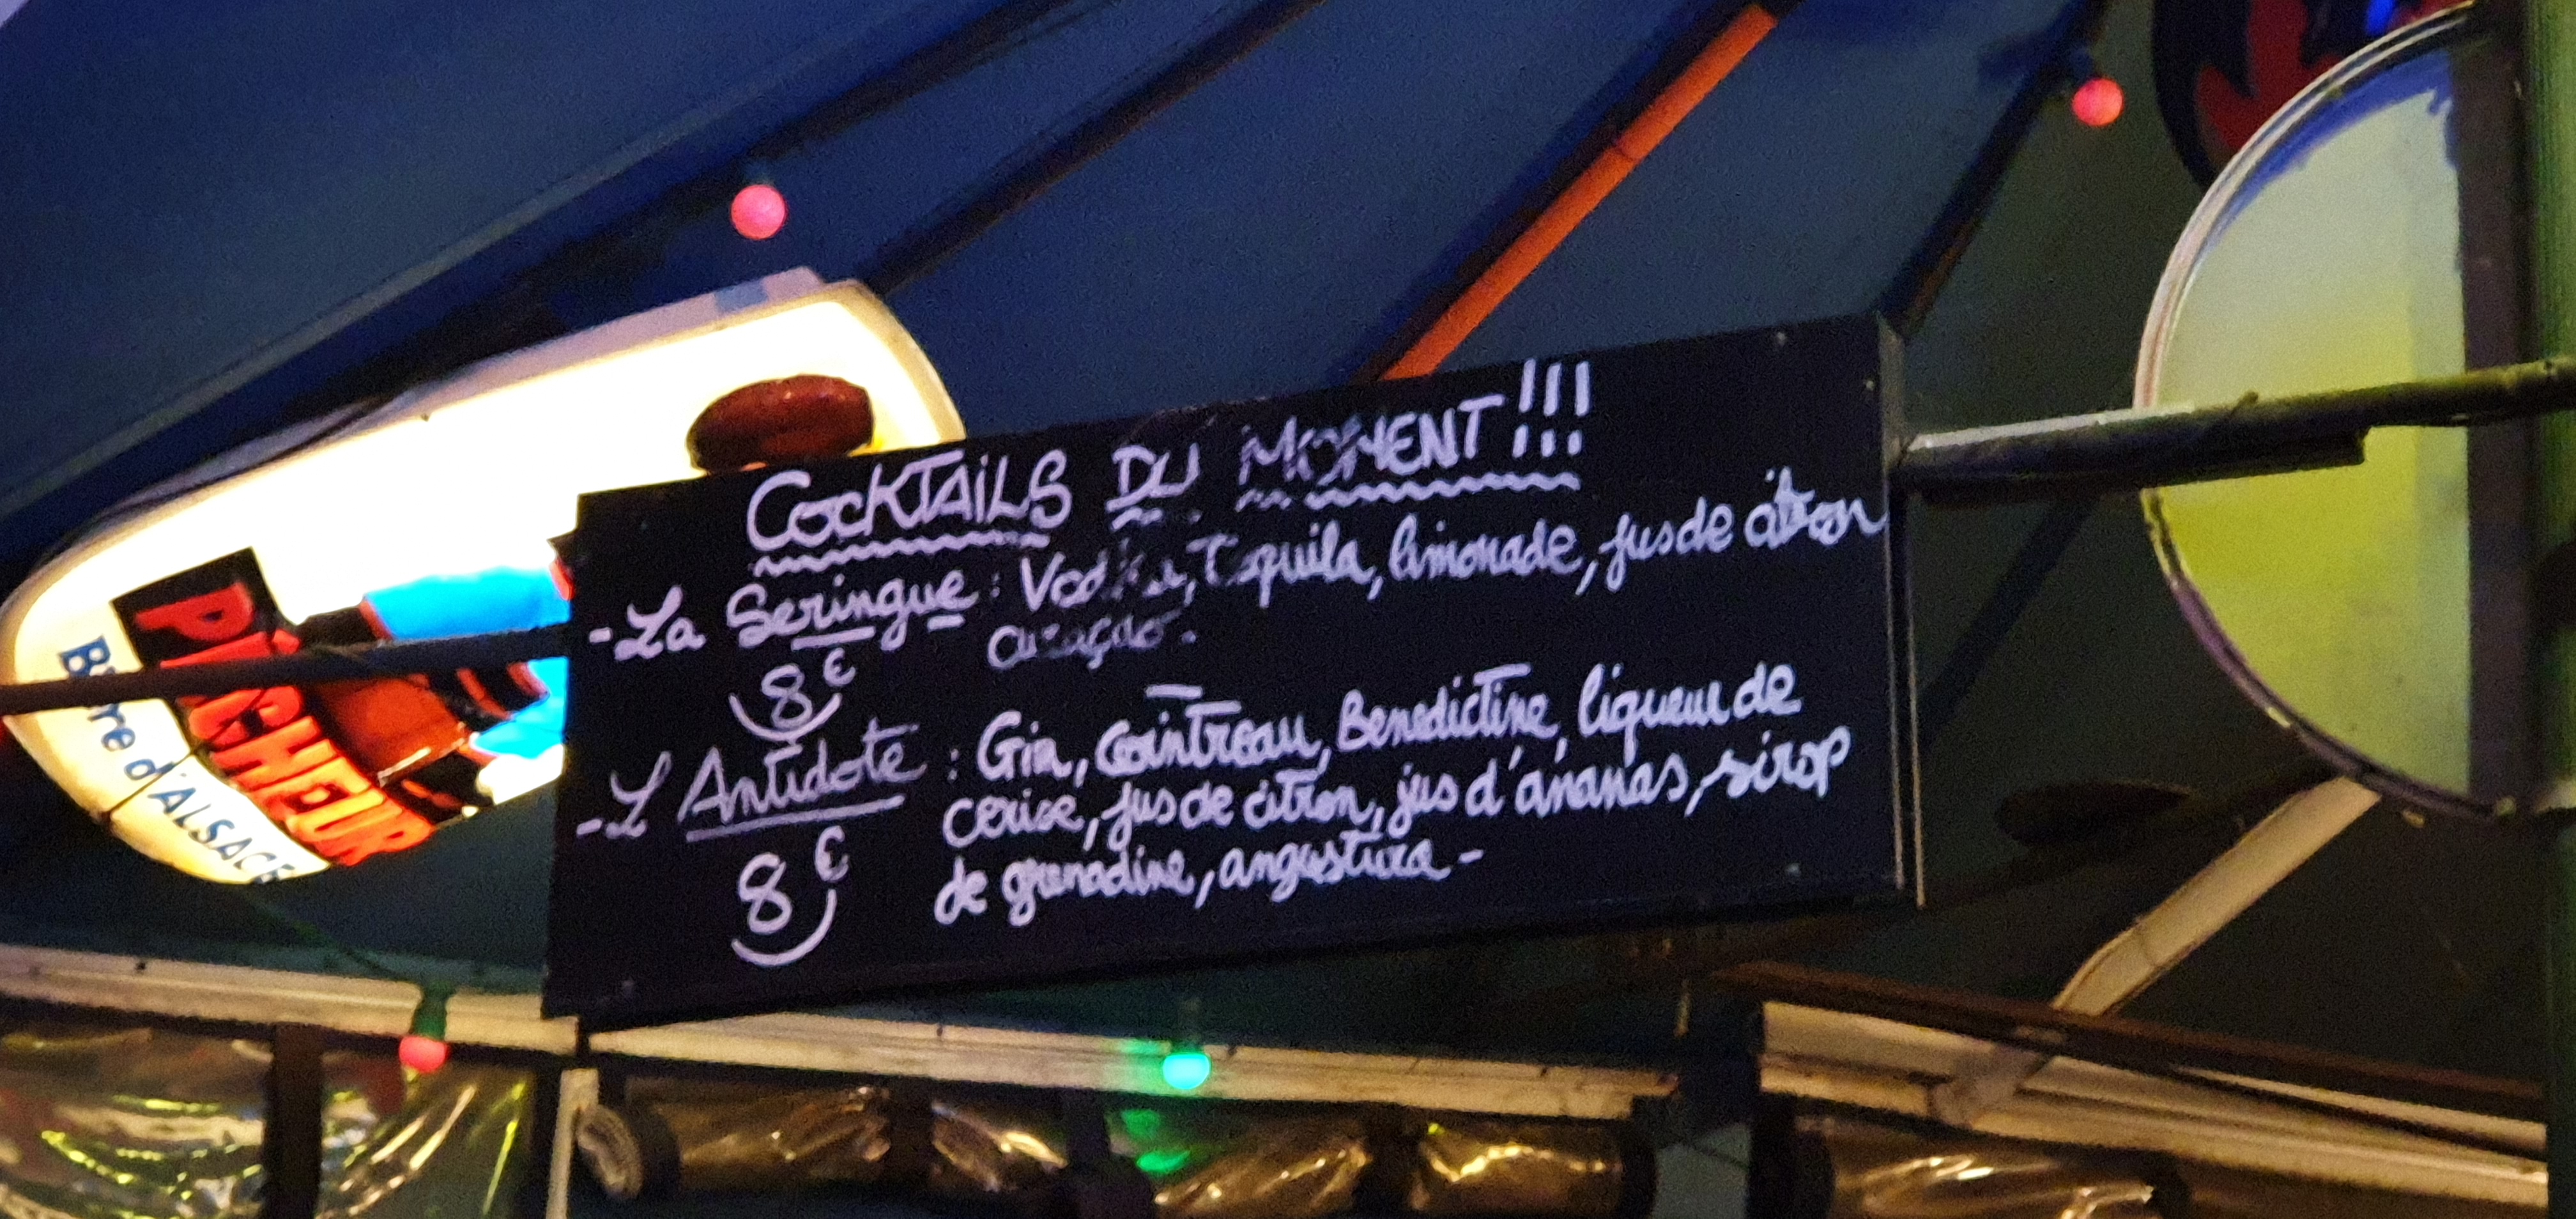 COCKTAILS DU MOMENT!!!
- La Seringue : Vodka, Tequila, limonade, jus de citron
curaçao.
8€
- L'Antidote : Gin, Cointreau, Benedictine, liqueur de
cerise, jus de citron, jus d'ananas, sirop
de grenadine, angustura -
8€
PÊCHEUR
Bière d'ALSACE